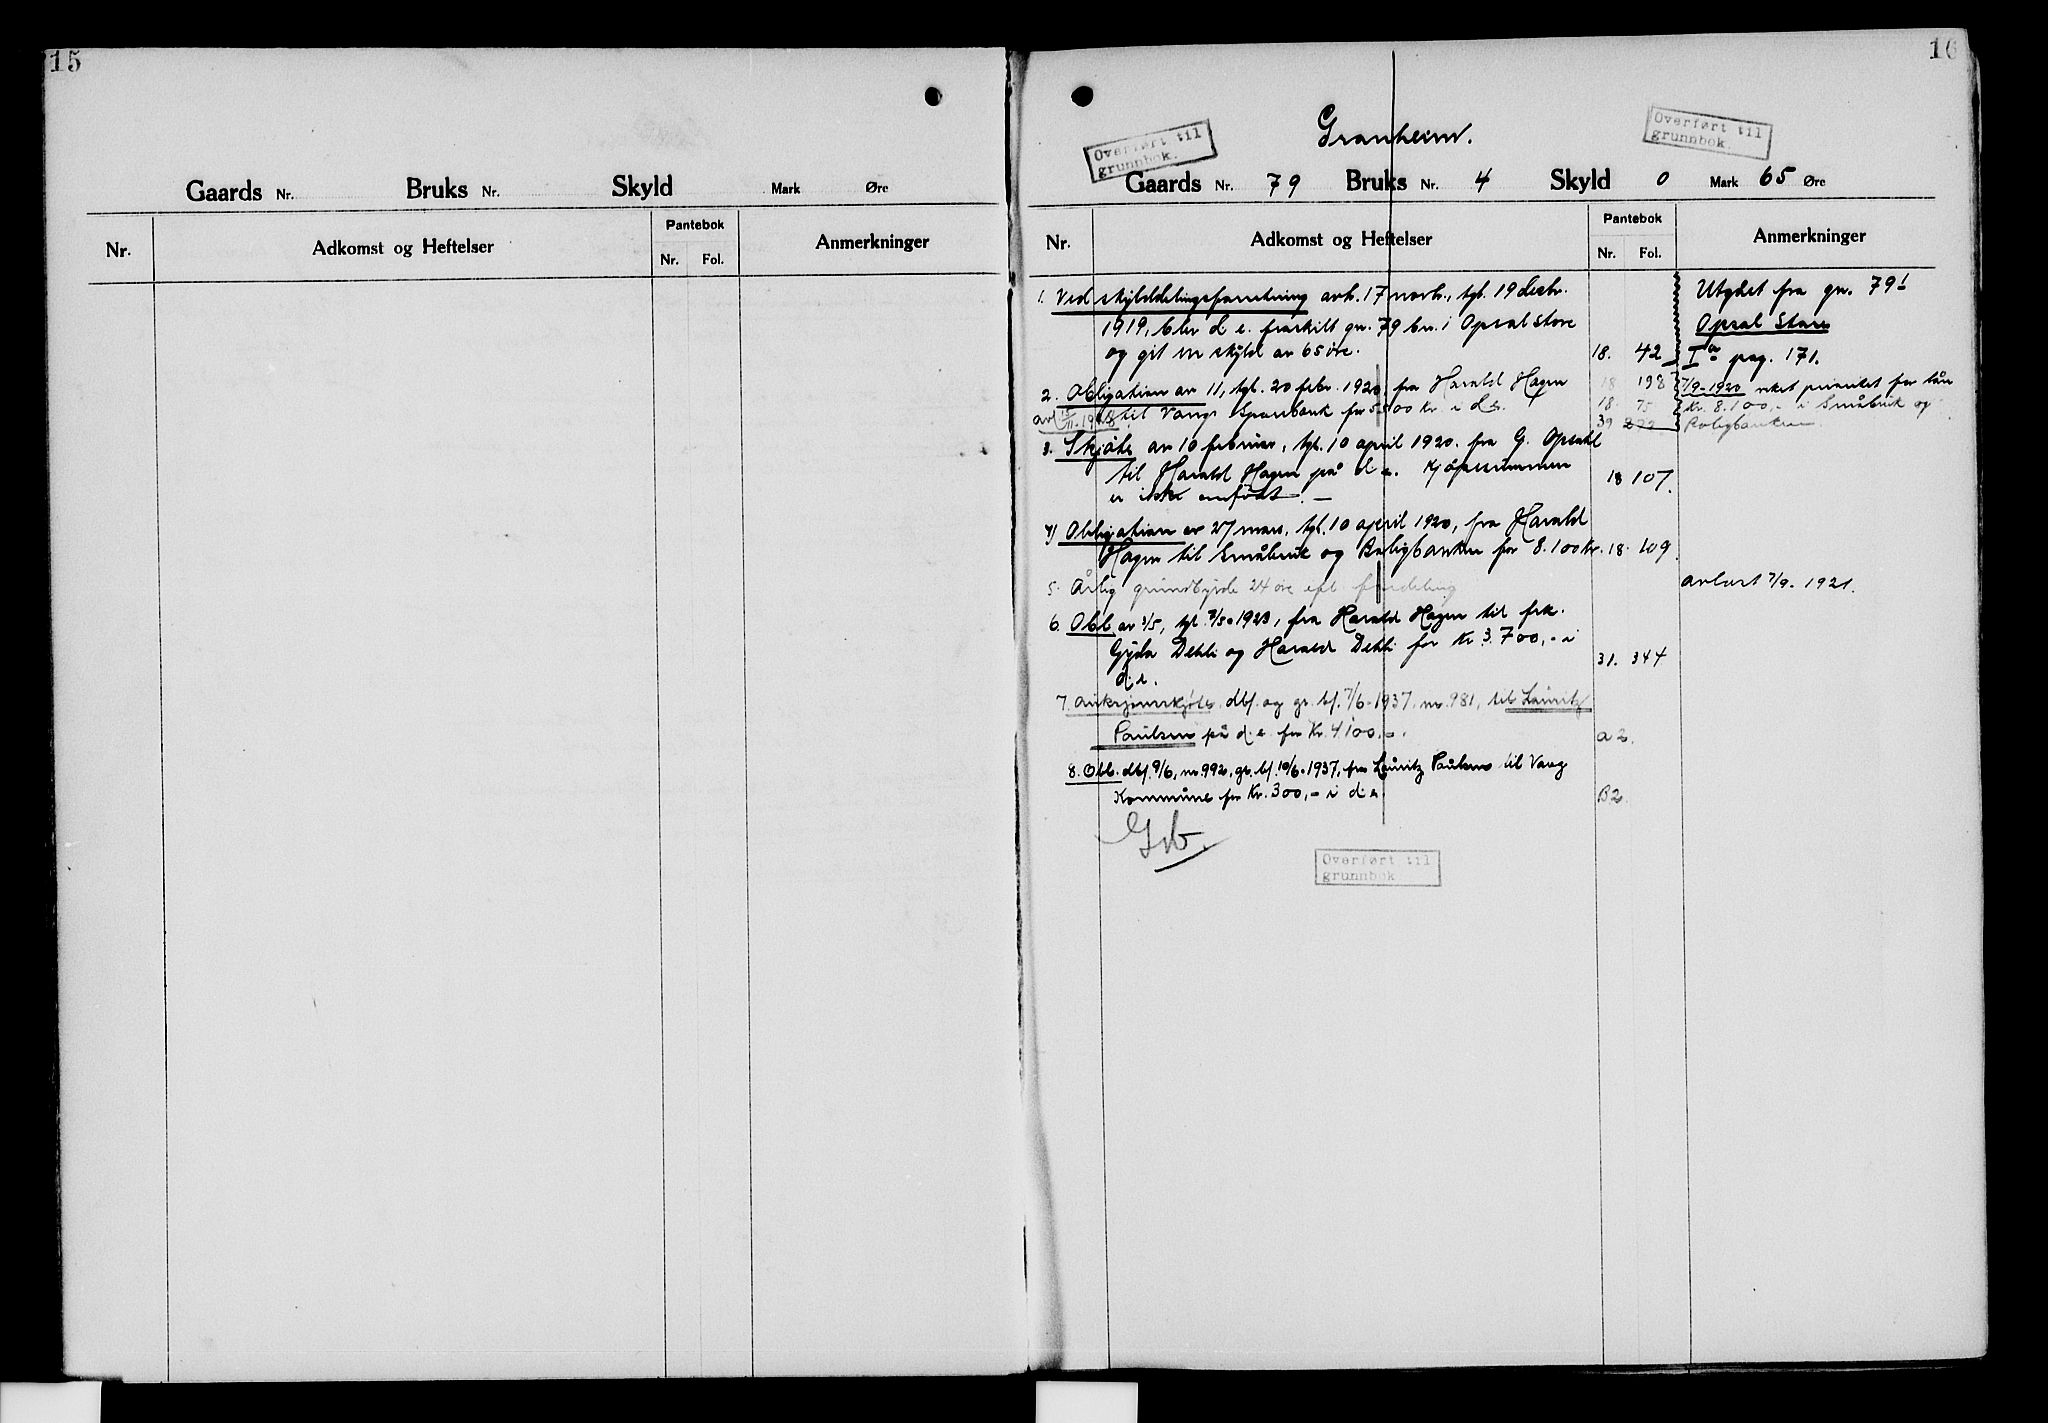 15
Gaards Nr. Bruks Nr. Skyld Mark Øre
Nr. Adkomst og Heftelser Pantebok Nr. Fol. Anmerkninger
16
Granheim.
Overført til
grunnbok.
Overført til
grunnbok.
Gaards Nr. 79 Bruks Nr. 4 Skyld 0 Mark 65 Øre
Nr. Adkomst og Heftelser Pantebok Nr. Fol. Anmerkninger
1. Ved skylddelingsforretning avh. 17 novbr., tgl. 19 decbr.
1919, blev d. e. fraskilt gn. 79 bn. 1 Opsal store
og git en skyld av 65 øre. 18. 42
Utgaet fra gn. 79 1
Opsal Store
I a pag. 171.
2. Obligation av 11, tgl. 20 febr. 1920 fra Harald Hagen 18 198
til Vangs Sparebank for 5500 Kr. i d. e. 18. 75
39
7/9-1920 veket prioritet for lån
Kr. 8.100,- i Småbruk og
Boligbanken.
3. Skjøte av 10 februar, tgl. 10 april 1920. fra G. Opsahl
til Harald Hagen på d. e. Kjøpesummen 18 107.
er ikke anført. -
4) Obligation av 27 mars, tgl. 10 april 1920, fra Harald
Hagen til Småbruk og Boligbanken for 8.100 kr. 18. 109
5. Årlig grundbyrde 24 øre efl. fordeling
avløst 7/9. 1921.
6. Obl. av 3/5, tgl. 1923, fra Harald Hagen til frk.
Gyda Dehli og Harald Dehli for Kr 3.700,- i
d. e. 31. 344
7. Auksjonsskjøte dbf. og gr. bf. 7/6-1937, nr. 981, til Lauritz
Paulsen på d. e. for Kr. 4100,-. a 2.
8. Obl. dbf. 9/6, nr. 992, gr. bf. 10/6-1937, fra Lauritz Paulsen til Vang
Kommune for Kr. 300,- i d. e. B2.
Grb.
Overført til
grunnbok